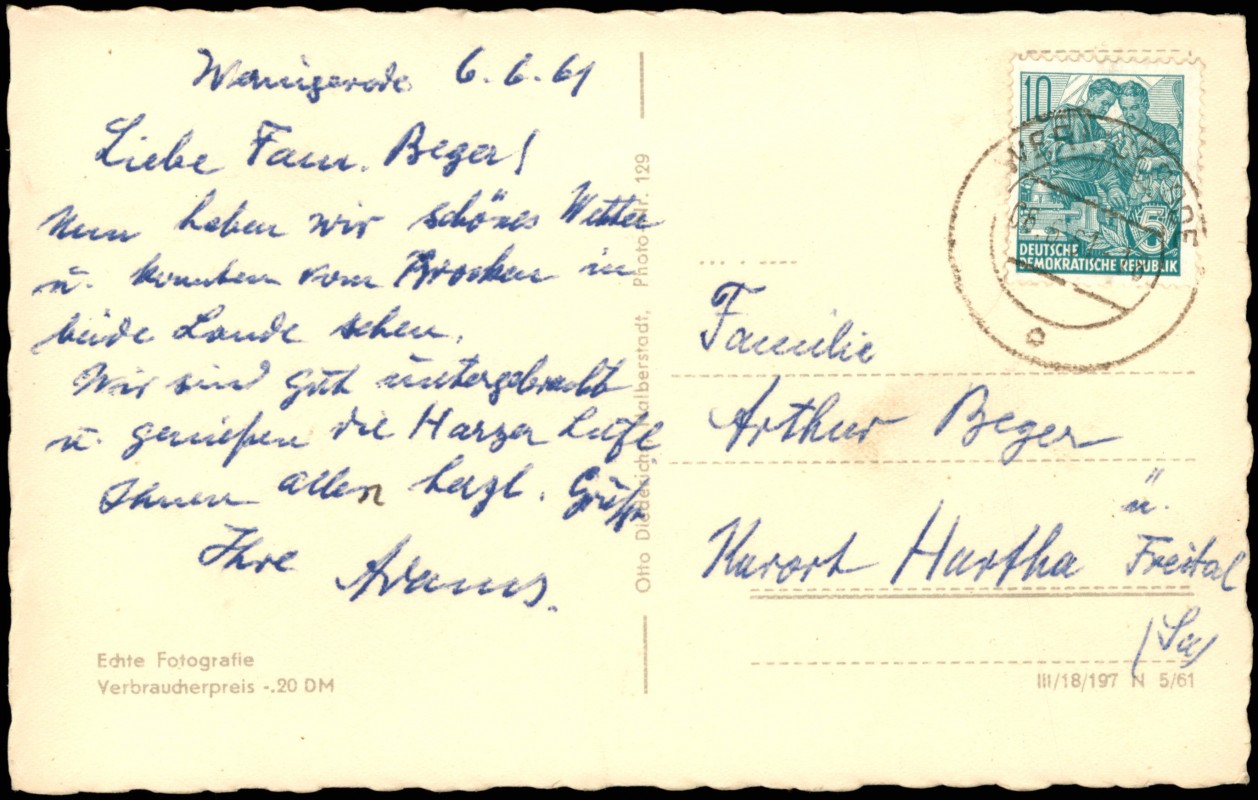 Wernigerode 6.6.61
Liebe Fam. Beger!
Nun haben wir schönes Wetter
u. konnten vom Brocken in
beide Lande sehen.
Wir sind gut untergebracht
u. genießen die Harzer Luft
Ihnen allen herzl. Grüße
Ihre Adams.
Echte Fotografie
Verbraucherpreis -.20 DM
Otto Diederich, Halberstadt, Photo-Nr. 129
10
5
DEUTSCHE
DEMOKRATISCHE REPUBLIK
WERNIGERODE
Familie
Arthur Beger
Kurort Hartha
ü.
Freital
(Sa)
III/18/197 N 5/61